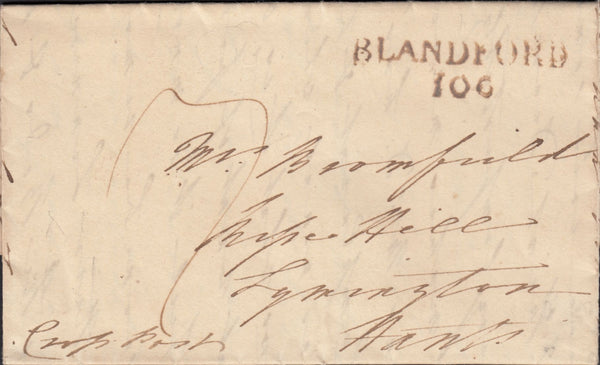 BLANDFORD
106
7
Mrs Bromfield
Hill
Lymington
Hants
Cross Post